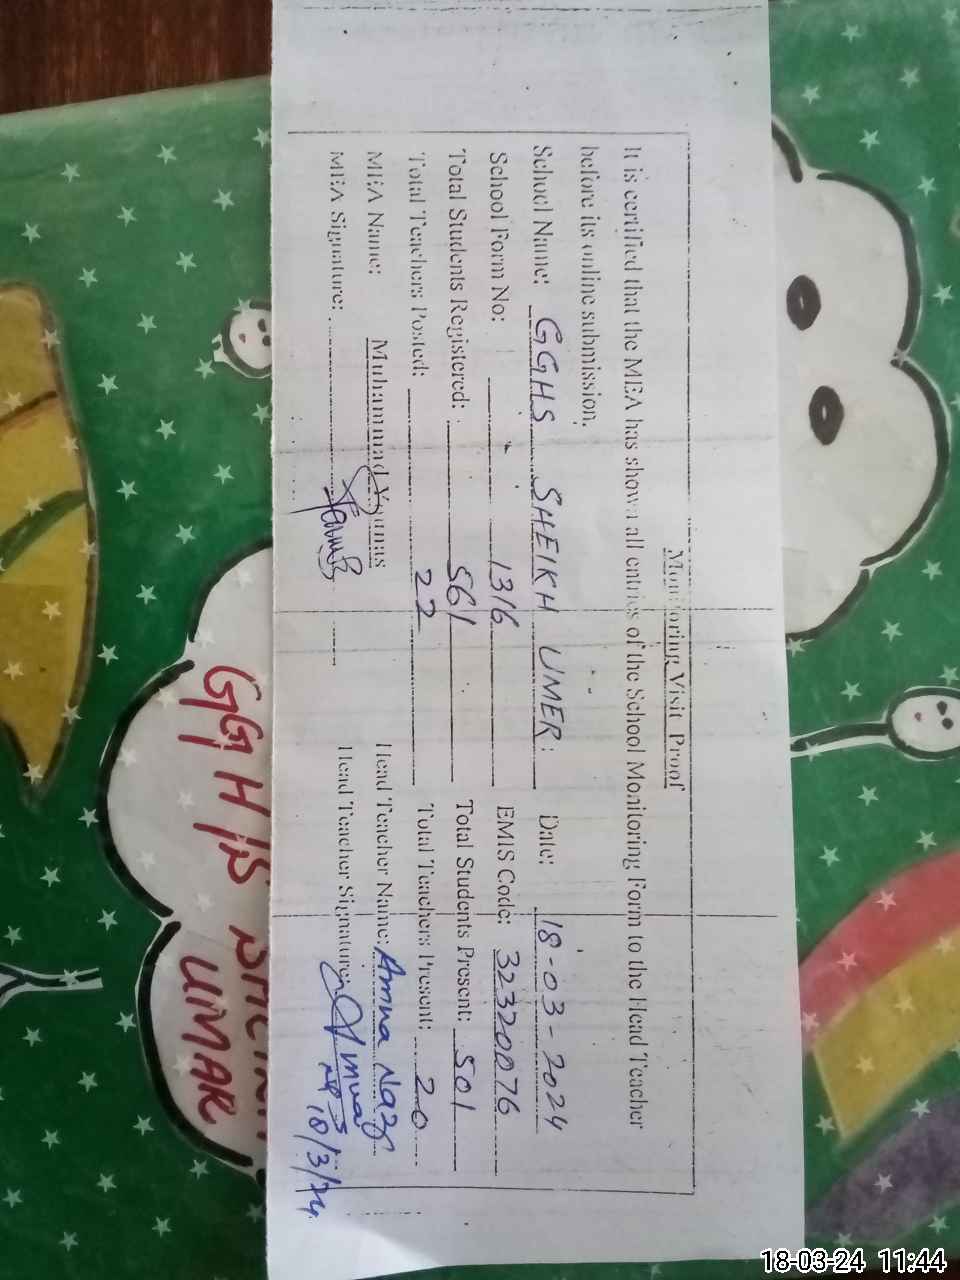 Monitoring Visit Proof
It is certified that the MEA has shown all entries of the School Monitoring Form to the Head Teacher
before its online submission.
School Name: GGHS SHEIKH UMER: Date: 18-03-2024
School Form No: 1316 EMIS Code: 32320076
Total Students Registered: 561 Total Students Present: 501
Total Teachers Posted: 22 Total Teachers Present: 20
MEA Name: Muhammad Younas Head Teacher Name: Amna Naz
MEA Signature: Head Teacher Signature: Amna
18/3/24
GGHS
UMAR
18-03-24 11:44